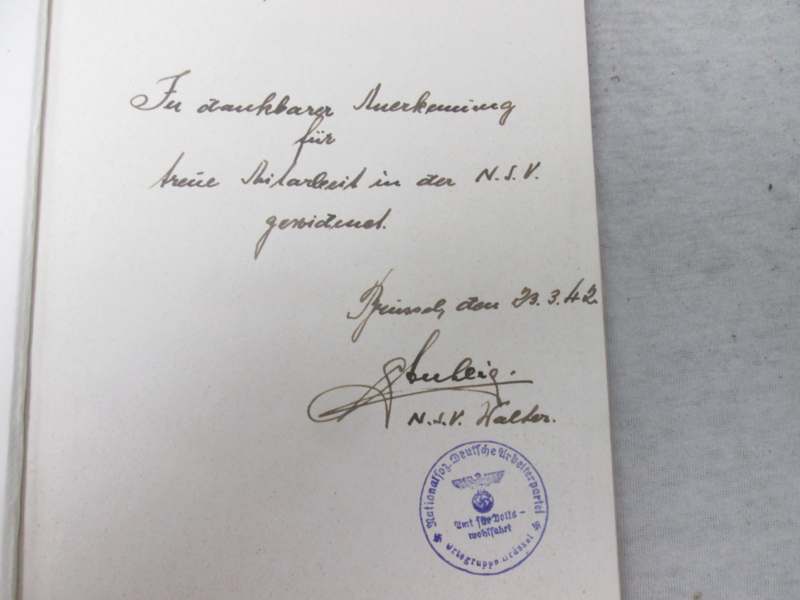 In dankbarer Anerkennung
für
treue Mitarbeit in der N.S.V.
gewidmet.
Brüssel, den 23.3.42.
N.S.V. Walter.
Nationalsoz. Deutsche Arbeiterpartei
Amt für Volks-
wohlfahrt
Ortsgruppe Brüssel